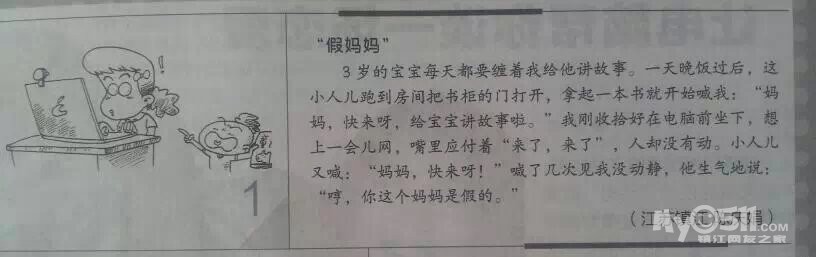 1
“假妈妈”
3岁的宝宝每天都要缠着我给他讲故事。一天晚饭过后，这
小人儿跑到房间把书柜的门打开，拿起一本书就开始喊我：“妈
妈，快来呀，给宝宝讲故事啦。”我刚收拾好在电脑前坐下，想
上一会儿网，嘴里应付着“来了，来了”，人却没有动。小人儿
又喊：“妈妈，快来呀！”喊了几次见我没动静，他生气地说：
“哼，你这个妈妈是假的。”
（江苏镇江
娟）
my0511.com
镇江网友之家